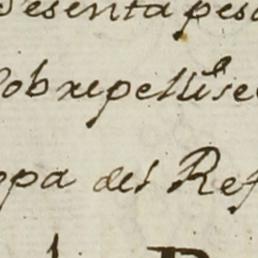 sesenta pes
Sobrepellise
opa del Ref